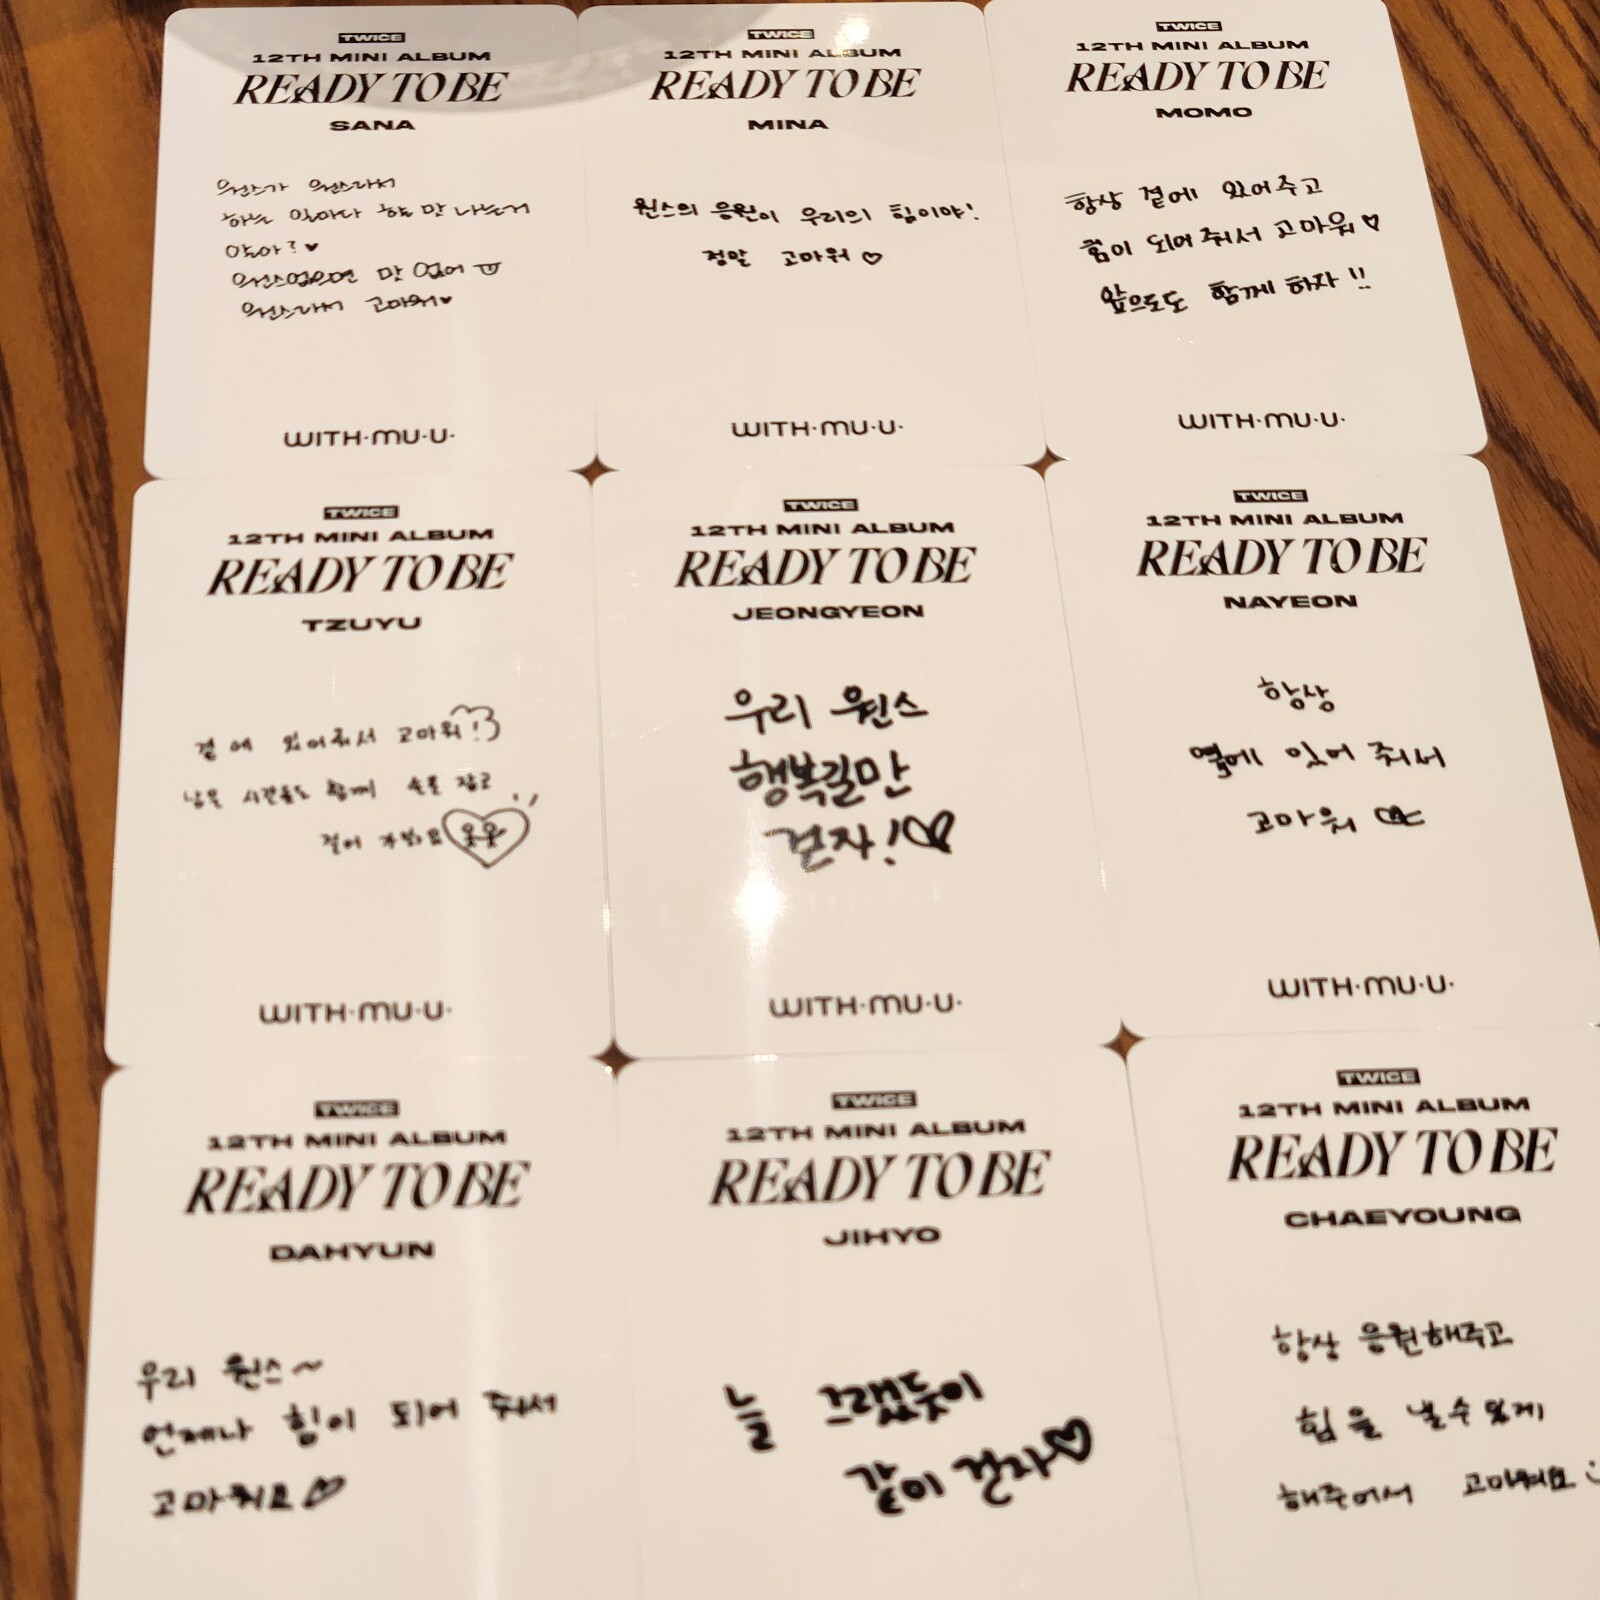 TWICE
12TH MINI ALBUM
READY TO BE
SANA
원스가 원스라서
하는 일마다 할 맛 나는거
알아?♥
원스없으면 맛 없어 ㅠ
원스라서 고마워♥
WITH·MU·U·
TWICE
12TH MINI ALBUM
READY TO BE
MINA
원스의 응원이 우리의 힘이야!
정말 고마워♡
WITH·MU·U·
TWICE
12TH MINI ALBUM
READY TO BE
MOMO
항상 곁에 있어주고
힘이 되어줘서 고마워♡
앞으로도 함께하자!!
WITH·MU·U·
TWICE
12TH MINI ALBUM
READY TO BE
TZUYU
곁에 있어줘서 고마워!
남은 시간들도 함께 손을 잡고
걸어 가봐요
WITH·MU·U·
TWICE
12TH MINI ALBUM
READY TO BE
JEONGYEON
우리 원스
행복길만
걷자!♡
WITH·MU·U·
TWICE
12TH MINI ALBUM
READY TO BE
NAYEON
항상
옆에 있어 줘서
고마워
WITH·MU·U·
TWICE
12TH MINI ALBUM
READY TO BE
DAHYUN
우리 원스~
언제나 힘이 되어 줘서
고마워요♡
TWICE
12TH MINI ALBUM
READY TO BE
JIHYO
늘 그랬듯이
같이 걷자♡
TWICE
12TH MINI ALBUM
READY TO BE
CHAEYOUNG
항상 응원해주고
힘을 낼수있게
해주어서 고마워요